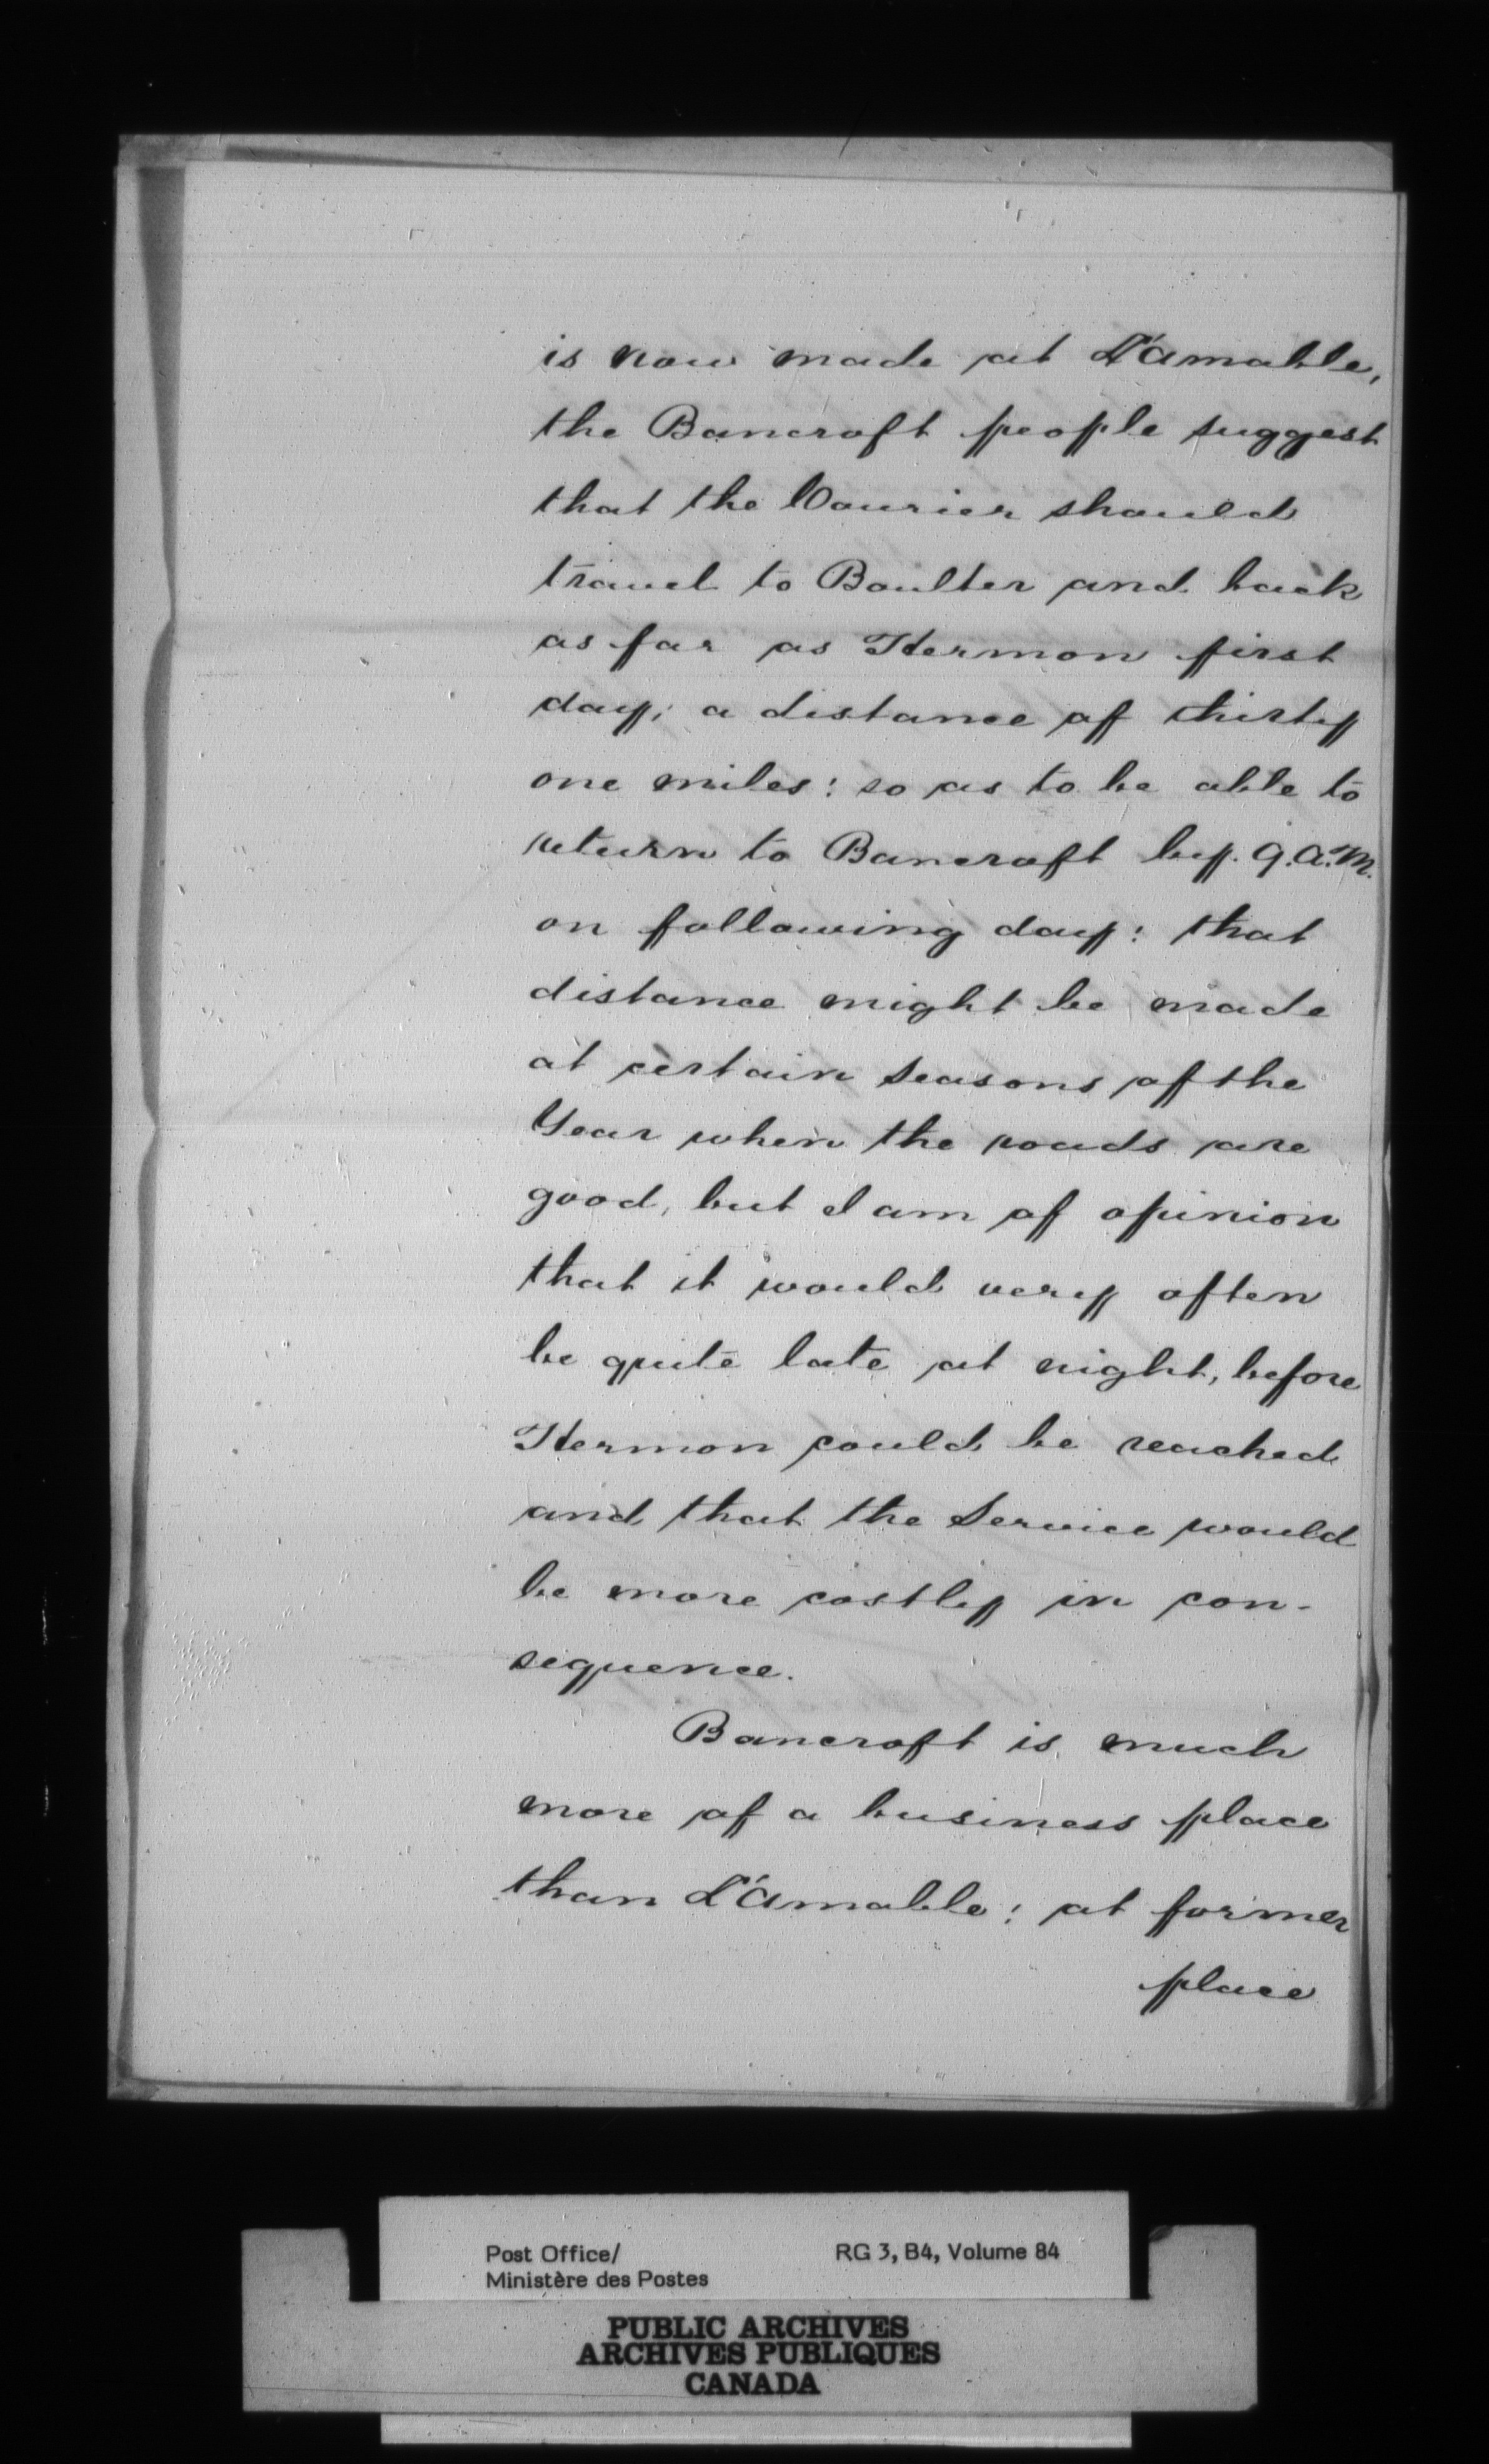 is now made at L'Amable,
the Bancroft people suggest
that the Courier should
travel to Boulter and back
as far as Hermon first
day; a distance of thirty
one miles: so as to be able to
return to Bancroft by 9.A.M.
on following day: that
distance might be made
at certain seasons of the
Year when the roads are
good, but I am of opinion
that it would very often
be quite late at night, before
Hermon could be reached
and that the Service would
be more costly in con-
sequence.
Bancroft is much
more of a business place
than L'Amable: at former
place
Post Office/
Ministère des Postes
RG 3, B4, Volume 84
PUBLIC ARCHIVES
ARCHIVES PUBLIQUES
CANADA